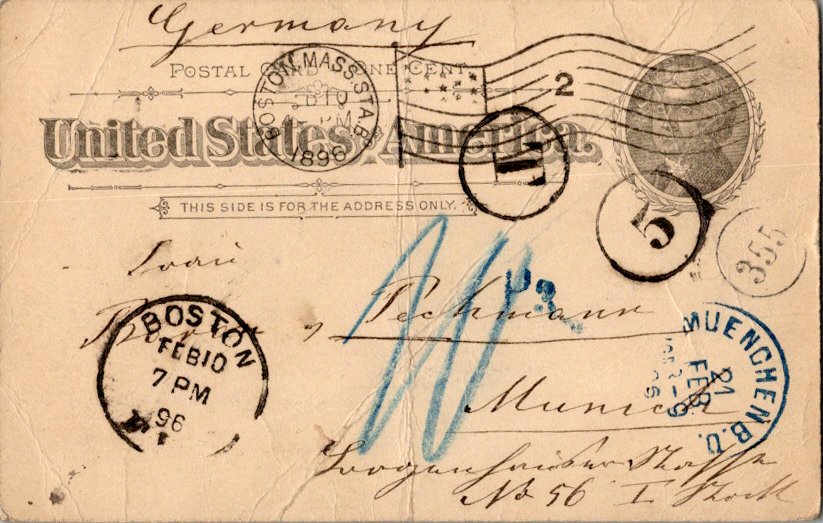 Germany
POSTAL CARD ONE CENT
BOSTON, MASS. STA.
FEB 10
PM
1896
2
United States of America.
THIS SIDE IS FOR THE ADDRESS ONLY.
T
5
355
Frau
Peckmann
Munich
No 56 I Stock
BOSTON
FEB 10
7 PM
96
MUENCHEN B.D.
21
FEB
8-9
96